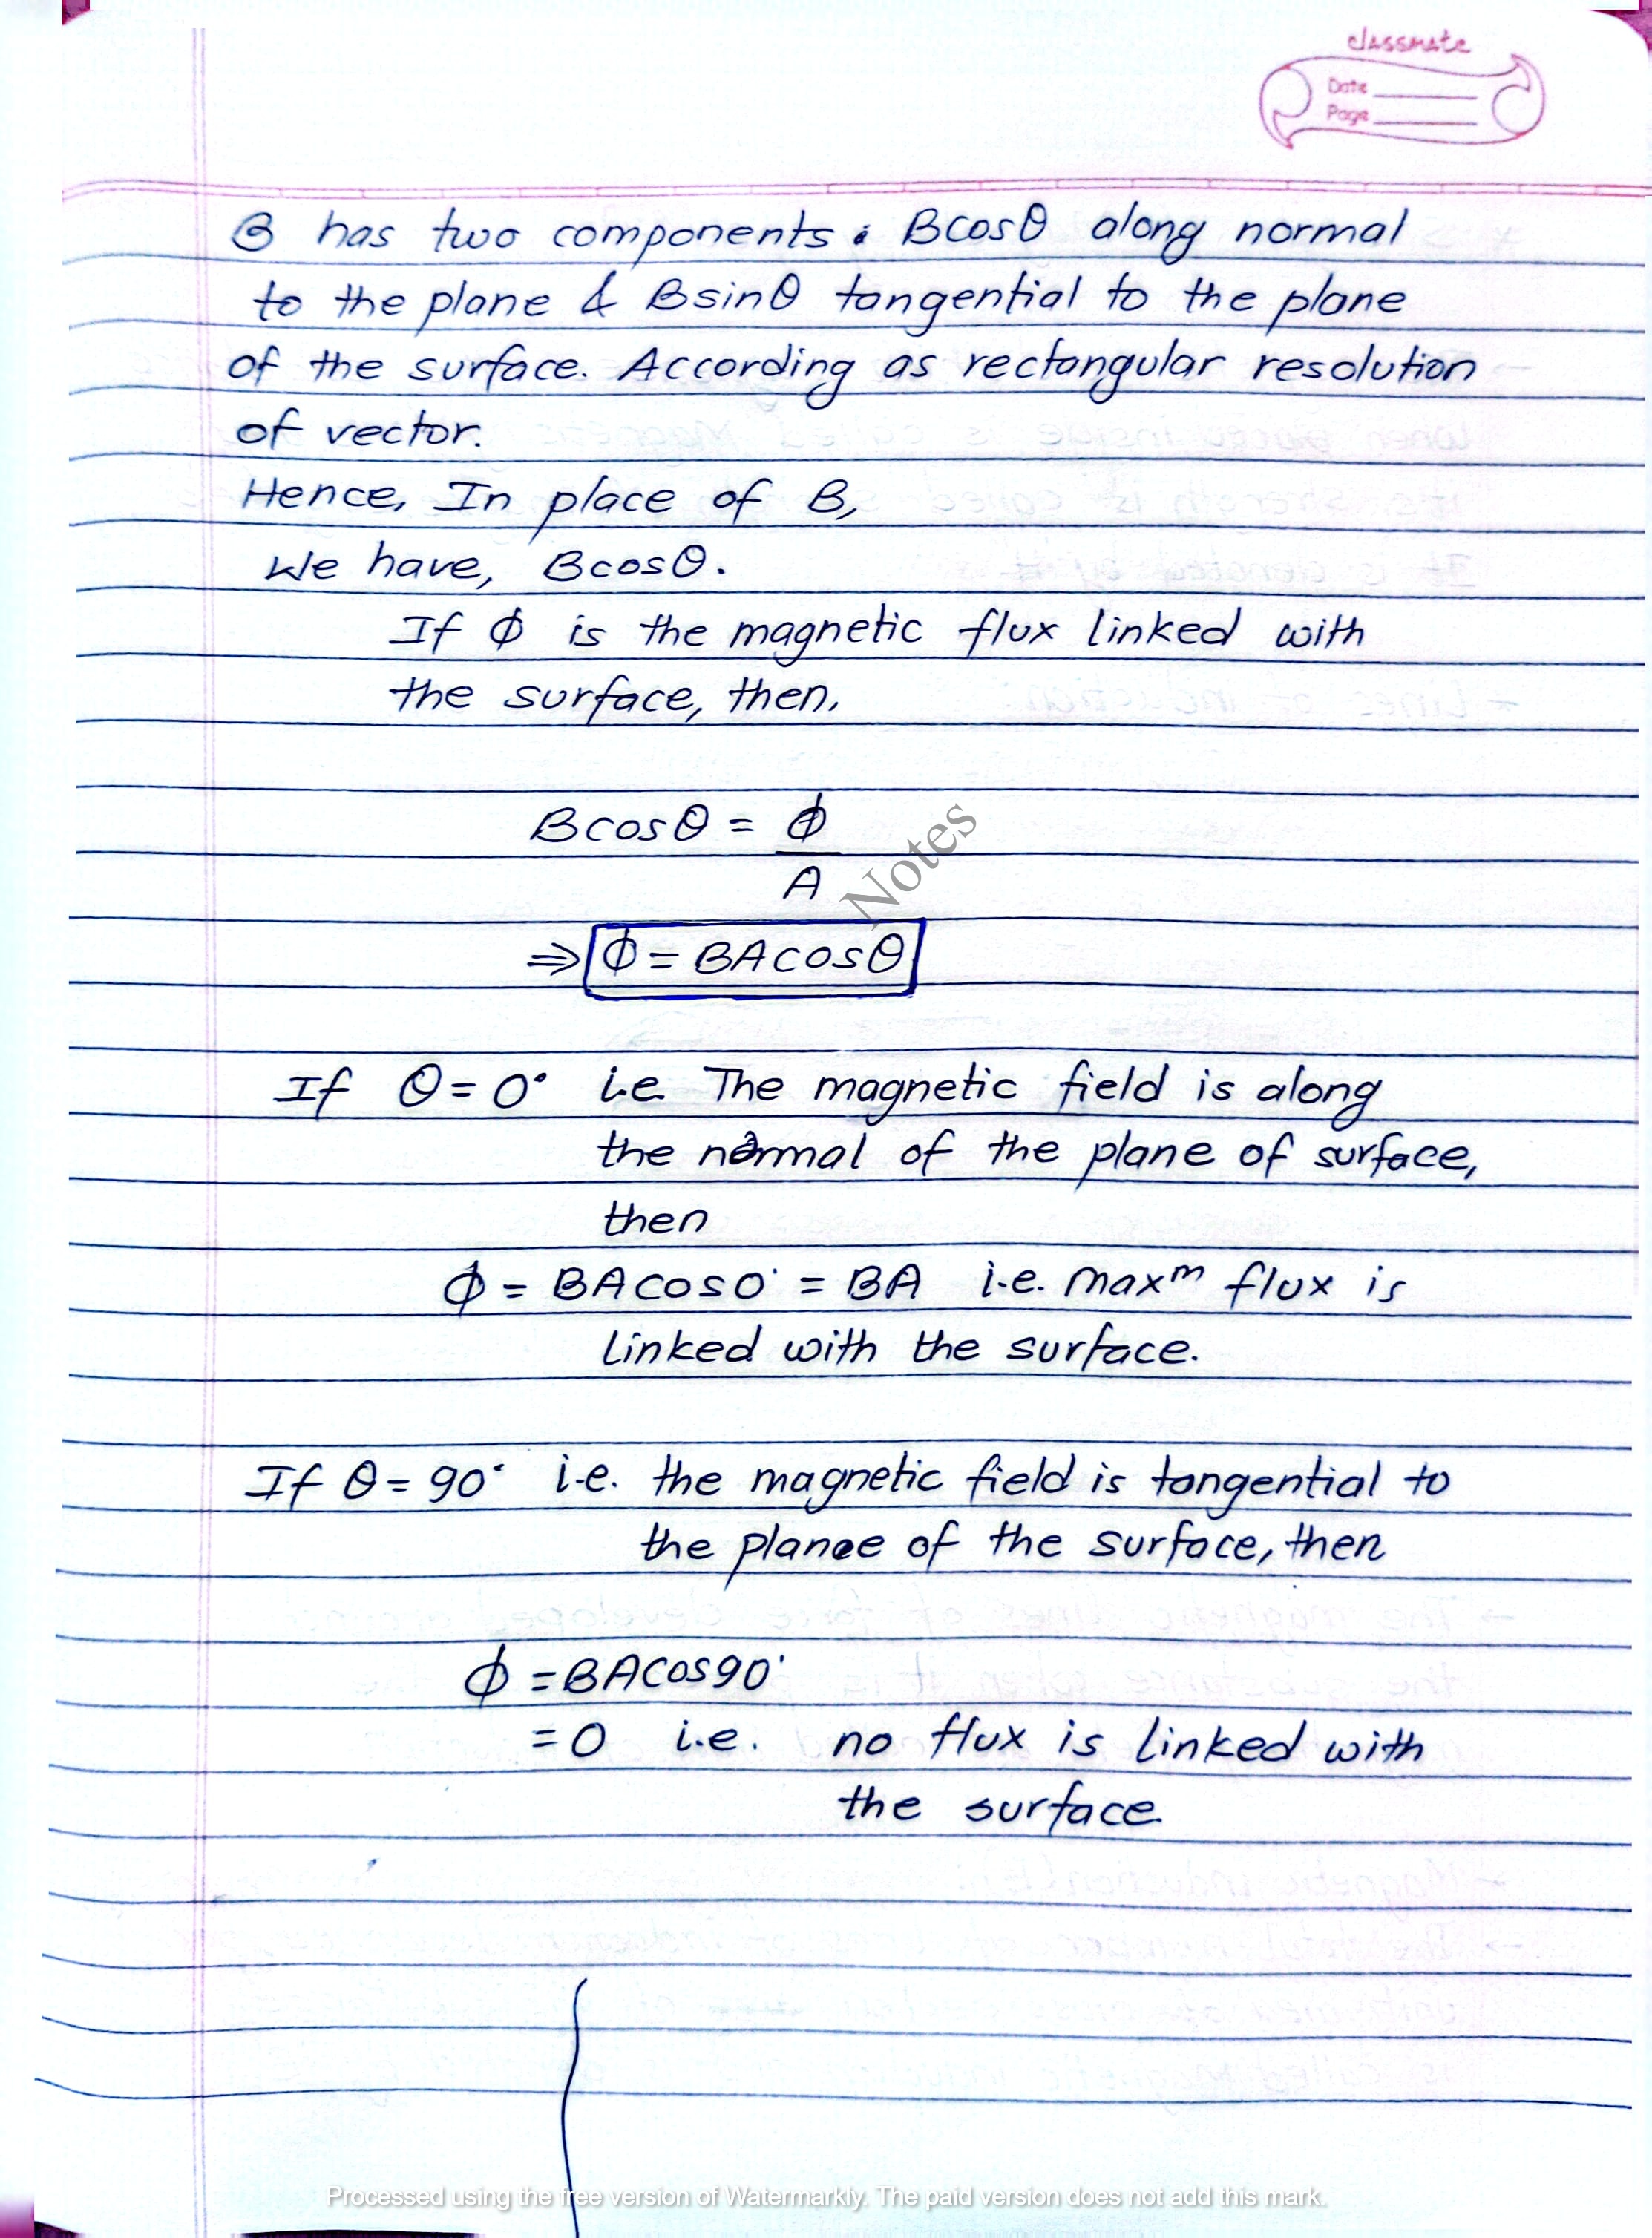 classmate
Date
Page
B has two components. Bcosθ along normal
to the plane & Bsinθ tangential to the plane
of the surface. According as rectangular resolution
of vector.
Hence, In place of B,
We have, Bcosθ.
If Φ is the magnetic flux linked with
the surface, then,
Bcosθ = Φ
A
Notes
⇒ Φ = BAcosθ
If θ = 0° i.e. The magnetic field is along
the normal of the plane of surface,
then
Φ = BAcos0° = BA i.e. maxᵐ flux is
linked with the surface.
If θ = 90° i.e. the magnetic field is tangential to
the planee of the surface, then
Φ = BAcos90°
= 0 i.e. no flux is linked with
the surface.
Processed using the free version of Watermarkly. The paid version does not add this mark.